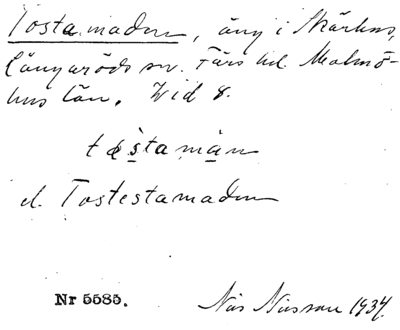 Tostamaden, äng i Skårhus,
Långaröds sn. Färs hd. Malmö-
hus län. Wid 8.
tøs̀tamàn
el. Tostestamaden
Nr 5585.
Nils Nilsson 1934.